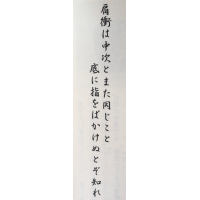 肩衝は中次とまた同じこと
底に指をばかけぬとぞ知れ